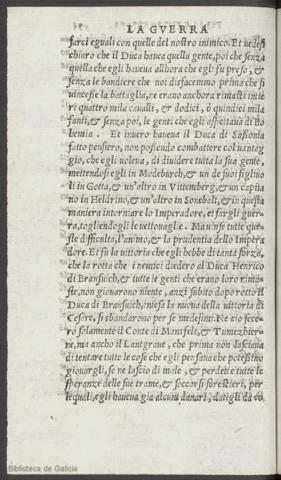 LA GVERRA
farci eguali con quelle del nostro inimico. Et uedesi
chiaro che il Duca haueua quella gente, poi che senza
quella che egli haueua allhora che egli fu preso, &
senza le bandiere che noi disfacemmo prima che si
uincesse la battaglia, ue erano anchora rimasti inte
ri quattro mila caualli, & dodici, ò quindici mila
fanti, & senza poi, le genti che egli aspettaua di Bo
hemia . Et inuero haueua il Duca di Sassonia
fatto pensiero, non possendo combattere col uantag
gio, che egli uoleua, di diuidere tutta la sua gente,
mettendosi egli in Medeburch, & un de suoi figliuo
li in Gotta, & un'altro in Vittemberg, & un capita
no in Heldrino, & un'altro in Sonebalt, & in questa
maniera intorniare lo Imperadore, et fargli guer
ra, togliendogli le nettouaglie. Ma uinse tutte que
ste difficulta, l'animo, & la prudentia dello Impera
dore. Et fu la uittoria che egli hebbe di tanta forza,
che la rotta che i nemici diedero al Duca Henrico
di Bransuich, & tutte le genti che erano loro rima-
ste, non giouarono niente, anzi subito dopo rotto il
Duca di Bransuich, intesa la nuoua della uittoria di
Cesare, si sbandarono per se medesimi. Ne cio fece-
ro solamente il Conte di Mansfelt, & Tumezhirr-
ne, ma ancho il Lantgraue, che prima non lasciaua
di tentare tutte le cose che egli pensaua che potessino
giouargli, se ne lascio di male, & perdette tutte le
speranze delle sue trame, & soccorsi forestieri, per
lequali, egli haueua gia alcuni danari, datigli da co
Biblioteca de Galicia